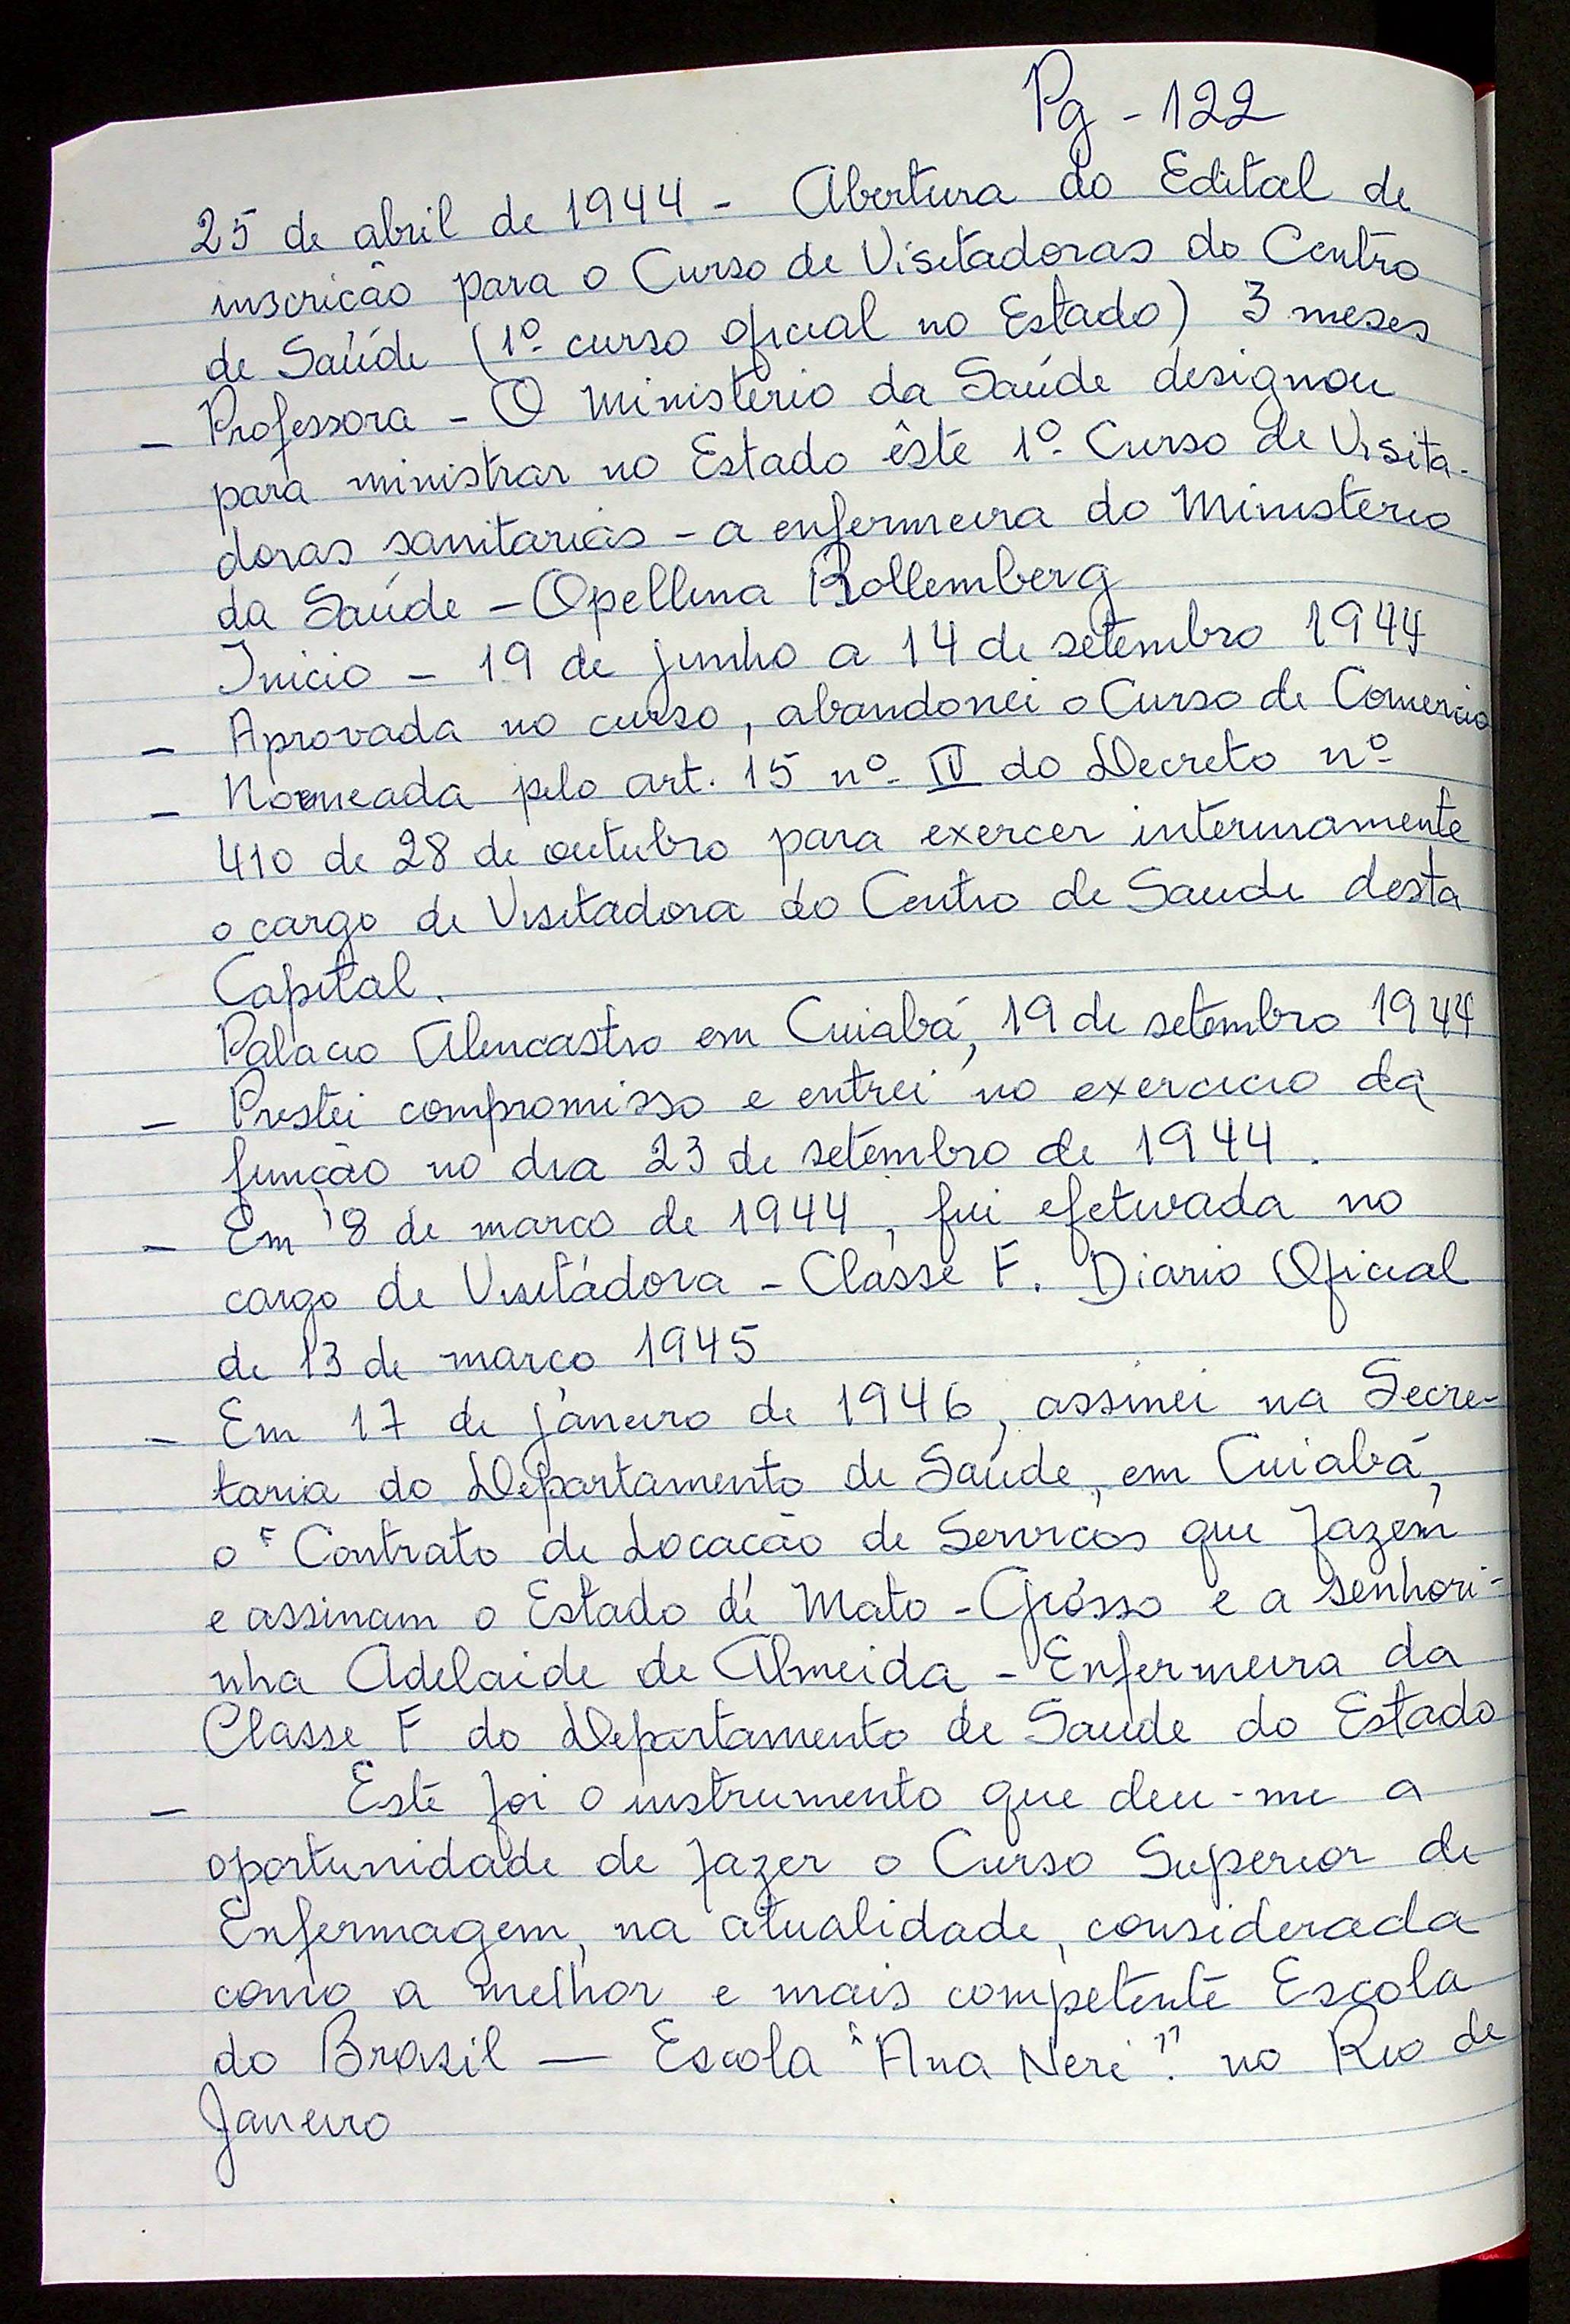 Pg - 122
25 de abril de 1944 - Abertura do Edital de
inscricão para o Curso de Visitadoras do Centro
de Saúde (1º curso oficial no Estado) 3 meses
- Professora - O Ministério da Saúde designou
para ministrar no Estado êste 1º Curso de Visita-
doras sanitarias - a enfermeira do Ministerio
da Saúde - Opellina Rollemberg
Inicio - 19 de junho a 14 de setembro 1944
- Aprovada no curso, abandonei o Curso de Comercio
- Nomeada pelo art. 15 nº IV do Decreto nº
410 de 28 de outubro para exercer interinamente
o cargo de Visitadora do Centro de Saude desta
Capital.
Palacio Alencastro em Cuiabá, 19 de setembro 1944
- Prestei compromisso e entrei no exercicio da
função no dia 23 de setembro de 1944.
- Em 8 de março de 1944, fui efetivada no
cargo de Visitadora - Classe F. Diario Oficial
de 13 de março 1945
- Em 17 de janeiro de 1946, assinei na Secre-
taria do Departamento de Saúde, em Cuiabá,
o "Contrato de Locacão de Servicos que fazem
e assinam o Estado de Mato-Grosso e a senhori-
nha Adelaide de Almeida - Enfermeira da
Classe F do Departamento de Saude do Estado
- Este foi o instrumento que deu-me a
oportunidade de fazer o Curso Superior de
Enfermagem, na atualidade, considerada
como a melhor e mais competente Escola
do Brasil — Escola "Ana Neri". no Rio de
Janeiro